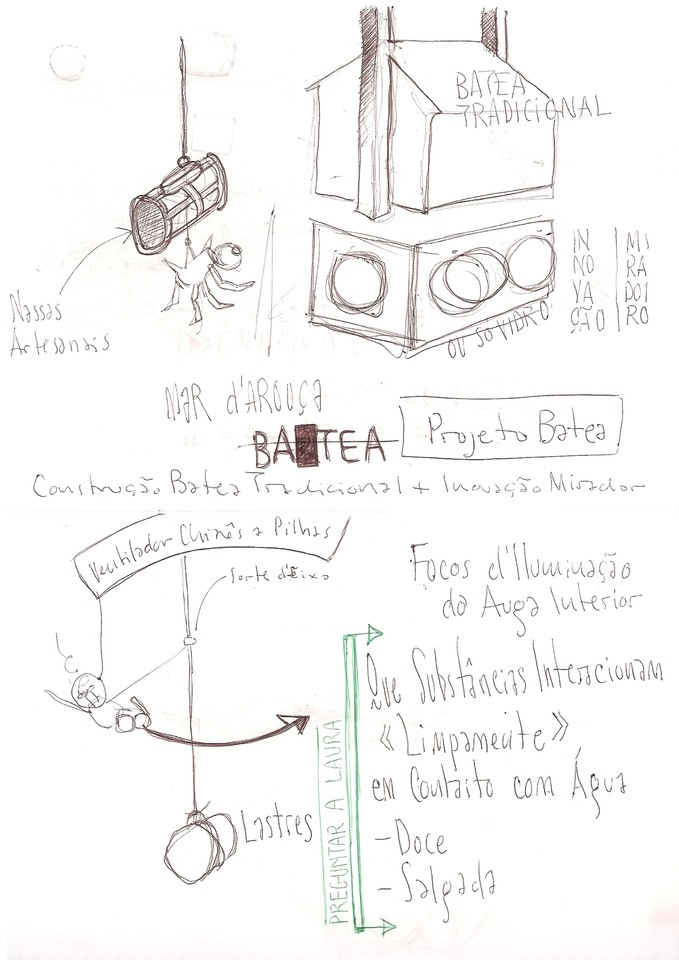 BATEA
TRADICIONAL
Nassas
Artesanais
IN
NO
VA
ÇÃO
MI
RA
DOI
RO
OU SÓ VIDRO
MAR d'AROUÇA
BATEA
Projeto Batea
Construção Batea Tradicional + Inovação Mirador
Ventilador Chinês a Pilhas
Sorte d'Eixo
Focos d'Iluminação
da Auga Interior
Que Substâncias Interacionam
«Limpamente»
em Contaito com Água
- Doce
- Salgada
PREGUNTAR A LAURA
Lastres